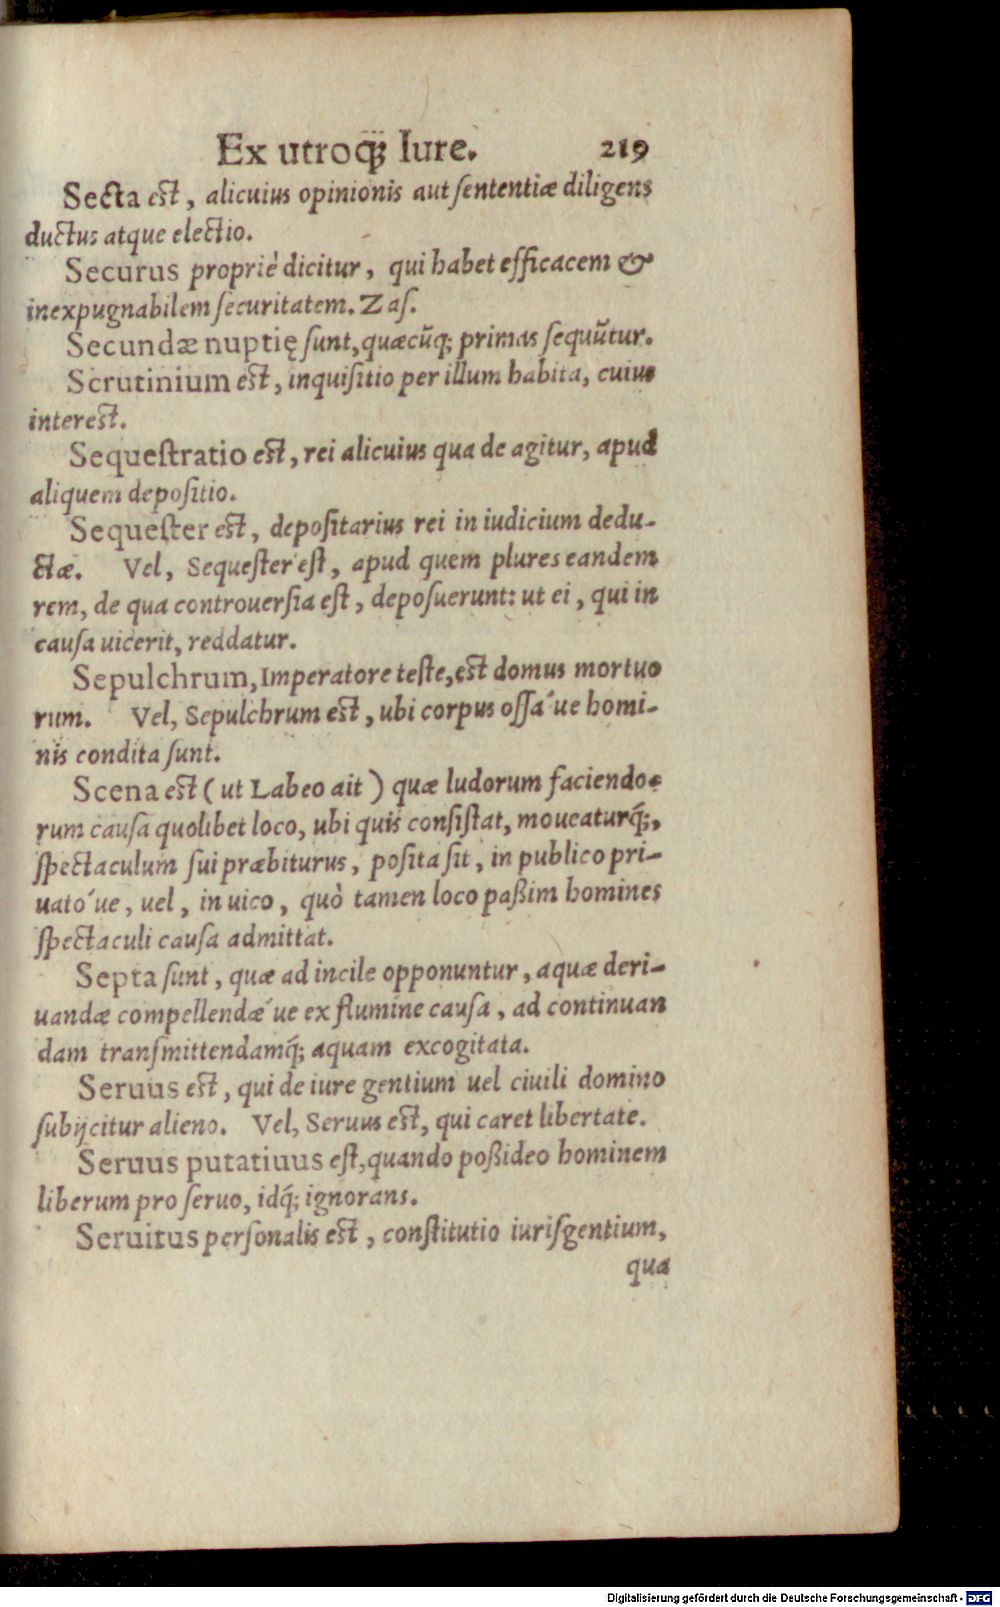 Ex utroq́; Iure. 219
Secta est, alicuius opinionis aut sententiæ diligens
ductus atque electio.
Securus propriè dicitur, qui habet efficacem &
inexpugnabilem securitatem. Zas.
Secundæ nuptię sunt, quæcũq; primas sequũtur.
Scrutinium est, inquisitio per illum habita, cuius
interest.
Sequestratio est, rei alicuius qua de agitur, apud
aliquem depositio.
Sequester est, depositarius rei in iudicium dedu-
ctæ. Vel, Sequester est, apud quem plures eandem
rem, de qua controuersia est, deposuerunt: ut ei, qui in
causa uicerit, reddatur.
Sepulchrum, Imperatore teste, est domus mortuo
rum. Vel, Sepulchrum est, ubi corpus ossá ue homi-
nis condita sunt.
Scena est ( ut Labeo ait ) quæ ludorum faciendo-
rum causa quolibet loco, ubi quis consistat, moueaturq́;,
spectaculum sui præbiturus, posita sit, in publico pri-
uató ue, uel, in uico, quò tamen loco paßim homines
spectaculi causa admittat.
Septa sunt, quæ ad incile opponuntur, aquæ deri-
uandæ compellendǽ ue ex flumine causa, ad continuan
dam transmittendamq́; aquam excogitata.
Seruus est, qui de iure gentium uel ciuili domino
subijcitur alieno. Vel, Seruus est, qui caret libertate.
Seruus putatiuus est, quando poßideo hominem
liberum pro seruo, idq́; ignorans.
Seruitus personalis est, constitutio iurisgentium,
qua
Digitalisierung gefördert durch die Deutsche Forschungsgemeinschaft - DFG